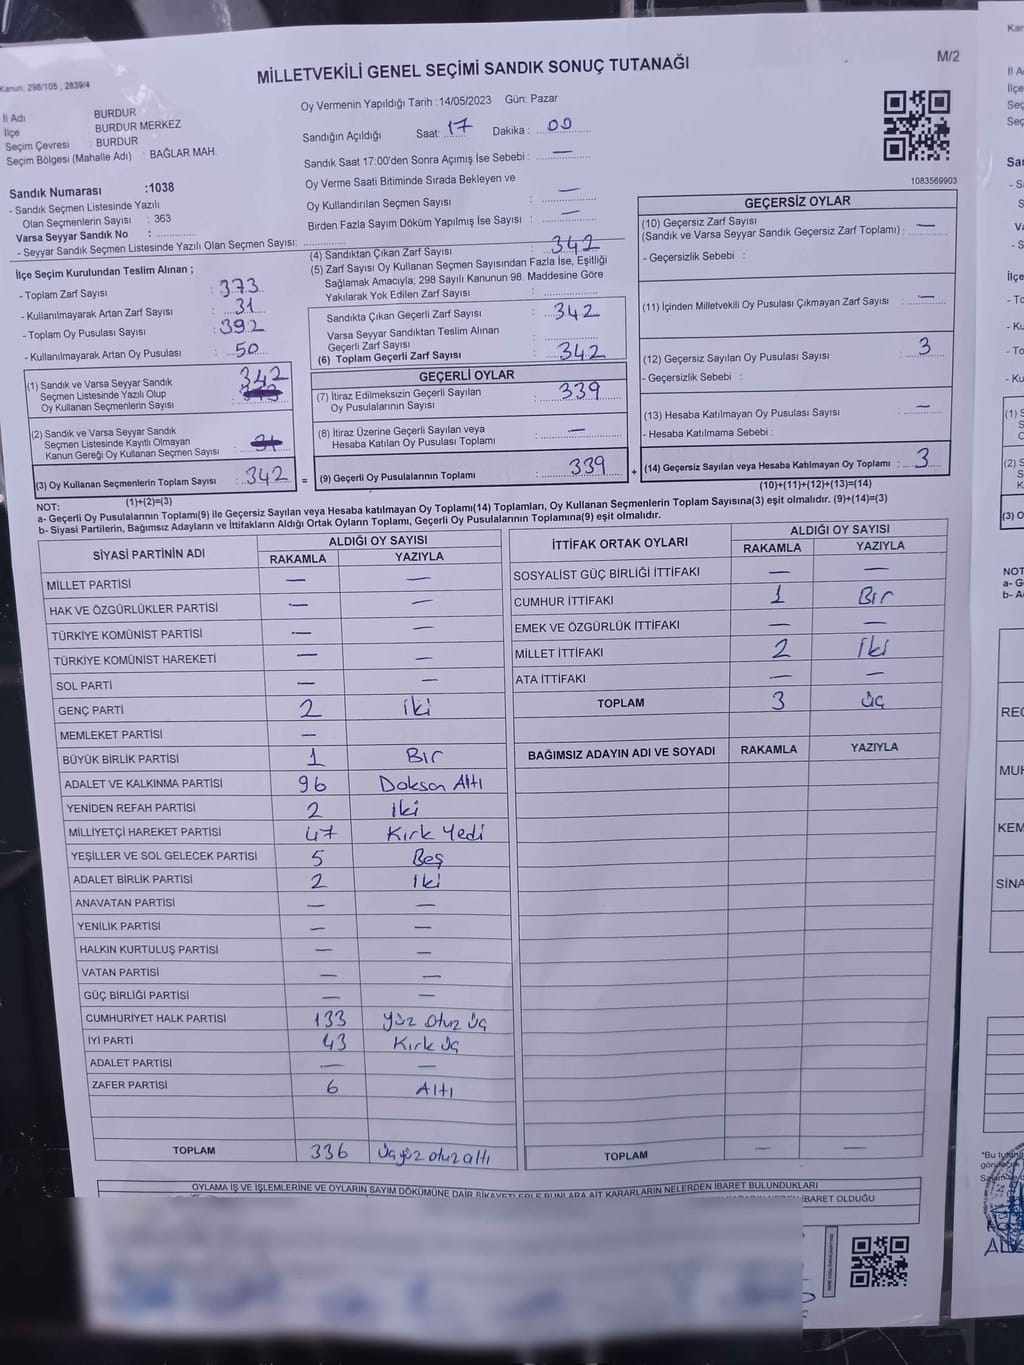 MİLLETVEKİLİ GENEL SEÇİMİ SANDIK SONUÇ TUTANAĞI
M/2
Kanun: 298/105 , 2839/4
İl Adı : BURDUR
İlçe : BURDUR MERKEZ
Seçim Çevresi : BURDUR
Seçim Bölgesi (Mahalle Adı) : BAĞLAR MAH.
Oy Vermenin Yapıldığı Tarih :14/05/2023 Gün: Pazar
Sandığın Açıldığı Saat: 17 Dakika : 00
Sandık Saat 17:00'den Sonra Açımış İse Sebebi : —
Oy Verme Saati Bitiminde Sırada Bekleyen ve
Oy Kullandırılan Seçmen Sayısı : —
Birden Fazla Sayım Döküm Yapılmış İse Sayısı : —
1083569903
Sandık Numarası :1038
- Sandık Seçmen Listesinde Yazılı
Olan Seçmenlerin Sayısı : 363
Varsa Seyyar Sandık No :
- Seyyar Sandık Seçmen Listesinde Yazılı Olan Seçmen Sayısı:
İlçe Seçim Kurulundan Teslim Alınan ;
- Toplam Zarf Sayısı : 373
- Kullanılmayarak Artan Zarf Sayısı : 31
- Toplam Oy Pusulası Sayısı : 392
- Kullanılmayarak Artan Oy Pusulası : 50
(1) Sandık ve Varsa Seyyar Sandık
Seçmen Listesinde Yazılı Olup
Oy Kullanan Seçmenlerin Sayısı : 342
(2) Sandık ve Varsa Seyyar Sandık
Seçmen Listesinde Kayıtlı Olmayan
Kanun Gereği Oy Kullanan Seçmen Sayısı :
(3) Oy Kullanan Seçmenlerin Toplam Sayısı : 342
(1)+(2)=(3)
(4) Sandıktan Çıkan Zarf Sayısı : 342
(5) Zarf Sayısı Oy Kullanan Seçmen Sayısından Fazla İse, Eşitliği
Sağlamak Amacıyla; 298 Sayılı Kanunun 98. Maddesine Göre
Yakılarak Yok Edilen Zarf Sayısı :
Sandıkta Çıkan Geçerli Zarf Sayısı : 342
Varsa Seyyar Sandıktan Teslim Alınan
Geçerli Zarf Sayısı :
(6) Toplam Geçerli Zarf Sayısı : 342
GEÇERLİ OYLAR
(7) İtiraz Edilmeksizin Geçerli Sayılan
Oy Pusulalarının Sayısı : 339
(8) İtiraz Üzerine Geçerli Sayılan veya
Hesaba Katılan Oy Pusulası Toplamı : —
= (9) Geçerli Oy Pusulalarının Toplamı : 339 +
GEÇERSİZ OYLAR
(10) Geçersiz Zarf Sayısı
(Sandık ve Varsa Seyyar Sandık Geçersiz Zarf Toplamı) : —
- Geçersizlik Sebebi :
(11) İçinden Milletvekili Oy Pusulası Çıkmayan Zarf Sayısı : —
(12) Geçersiz Sayılan Oy Pusulası Sayısı : 3
- Geçersizlik Sebebi :
(13) Hesaba Katılmayan Oy Pusulası Sayısı : —
- Hesaba Katılmama Sebebi :
(14) Geçersiz Sayılan veya Hesaba Katılmayan Oy Toplamı : 3
(10)+(11)+(12)+(13)=(14)
NOT:
a- Geçerli Oy Pusulalarının Toplamı(9) ile Geçersiz Sayılan veya Hesaba katılmayan Oy Toplamı(14) Toplamları, Oy Kullanan Seçmenlerin Toplam Sayısına(3) eşit olmalıdır. (9)+(14)=(3)
b- Siyasi Partilerin, Bağımsız Adayların ve İttifakların Aldığı Ortak Oyların Toplamı, Geçerli Oy Pusulalarının Toplamına(9) eşit olmalıdır.
SİYASİ PARTİNİN ADI ALDIĞI OY SAYISI
RAKAMLA YAZIYLA
MİLLET PARTİSİ — —
HAK VE ÖZGÜRLÜKLER PARTİSİ — —
TÜRKİYE KOMÜNİST PARTİSİ — —
TÜRKİYE KOMÜNİST HAREKETİ — —
SOL PARTİ — —
GENÇ PARTİ 2 iki
MEMLEKET PARTİSİ —
BÜYÜK BİRLİK PARTİSİ 1 Bir
ADALET VE KALKINMA PARTİSİ 96 Doksan Altı
YENİDEN REFAH PARTİSİ 2 iki
MİLLİYETÇİ HAREKET PARTİSİ 47 Kırk Yedi
YEŞİLLER VE SOL GELECEK PARTİSİ 5 Beş
ADALET BİRLİK PARTİSİ 2 İki
ANAVATAN PARTİSİ — —
YENİLİK PARTİSİ — —
HALKIN KURTULUŞ PARTİSİ — —
VATAN PARTİSİ — —
GÜÇ BİRLİĞİ PARTİSİ — —
CUMHURİYET HALK PARTİSİ 133 Yüz Otuz Üç
İYİ PARTİ 43 Kırk Üç
ADALET PARTİSİ — —
ZAFER PARTİSİ 6 Altı
TOPLAM 336 Üçyüz otuz altı
İTTİFAK ORTAK OYLARI ALDIĞI OY SAYISI
RAKAMLA YAZIYLA
SOSYALİST GÜÇ BİRLİĞİ İTTİFAKI — —
CUMHUR İTTİFAKI 1 Bir
EMEK VE ÖZGÜRLÜK İTTİFAKI — —
MİLLET İTTİFAKI 2 İki
ATA İTTİFAKI — —
TOPLAM 3 Üç
BAĞIMSIZ ADAYIN ADI VE SOYADI RAKAMLA YAZIYLA
TOPLAM — —
OYLAMA İŞ VE İŞLEMLERİNE VE OYLARIN SAYIM DÖKÜMÜNE DAİR ŞİKAYETLERLE BUNLARA AİT KARARLARIN NELERDEN İBARET BULUNDUKLARI
İBARET OLDUĞU